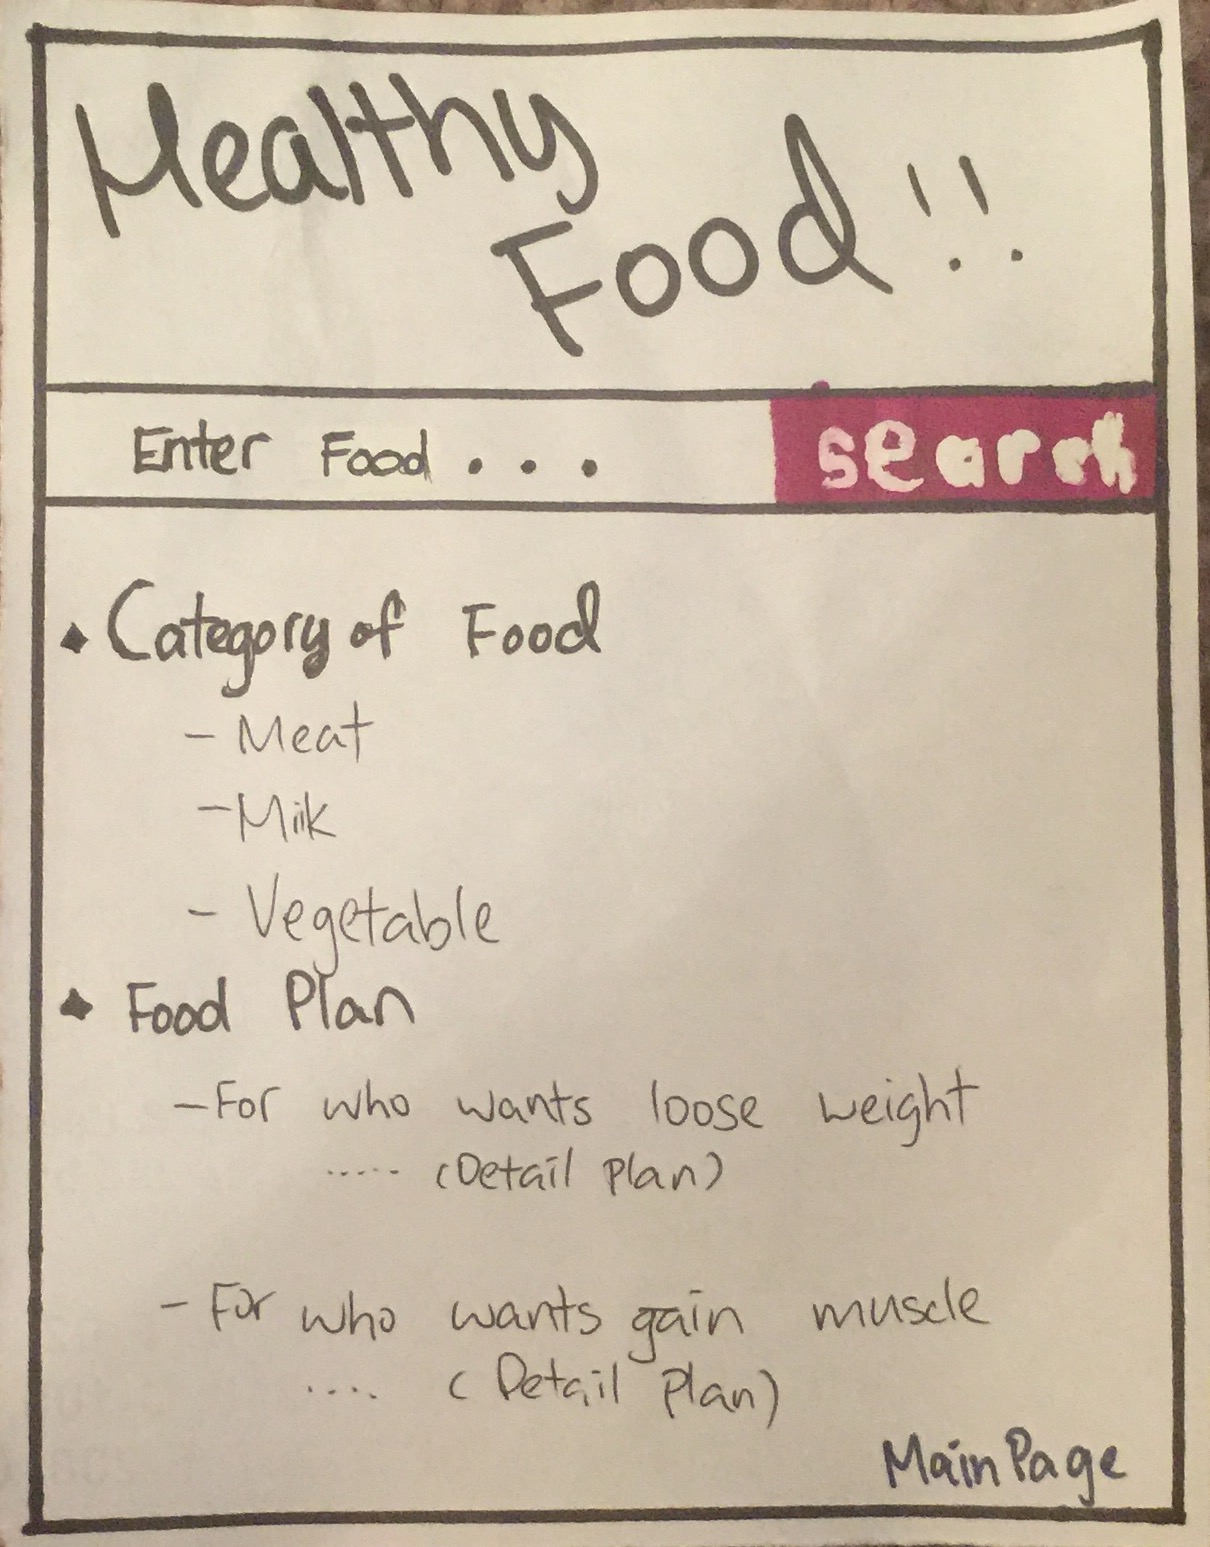 Healthy
Food!!
Enter Food... search
Category of Food
- Meat
- Milk
- Vegetable
Food Plan
- For who wants loose weight
..... (Detail Plan)
- For who wants gain muscle
.... (Detail Plan)
Main Page